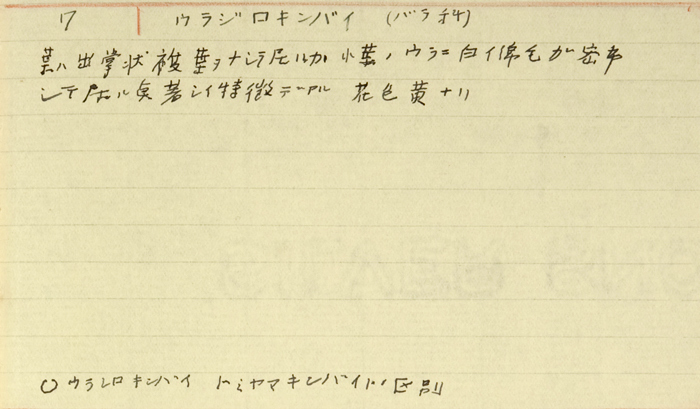 17 ウラジロキンバイ (バラ科)
葉ハ出掌状複葉ヲナシテ居ルガ小葉ノウラニ白イ綿毛が密布
シテ居ル点著シイ特徴デアル 花色黄ナリ
○ウラジロキンバイ トミヤマキンバイトノ区別